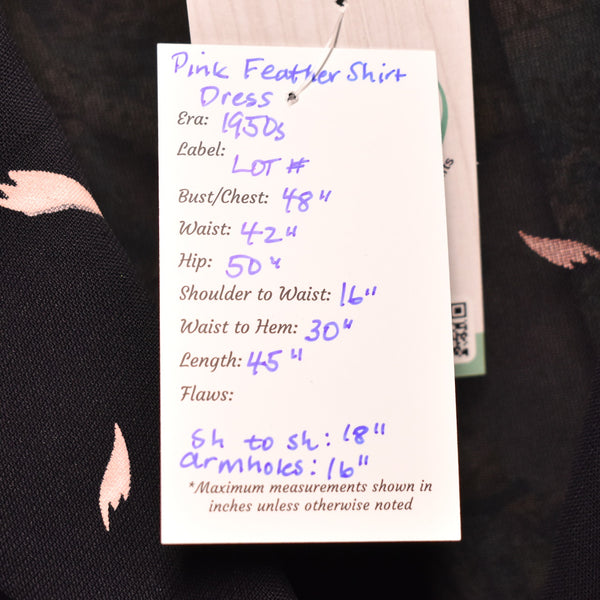 Pink Feather Shirt
Dress
Era: 1950s
Label:
LOT #
Bust/Chest: 48"
Waist: 42"
Hip: 50"
Shoulder to Waist: 16"
Waist to Hem: 30"
Length: 45"
Flaws:
Sh to sh: 18"
armholes: 16"
*Maximum measurements shown in
inches unless otherwise noted